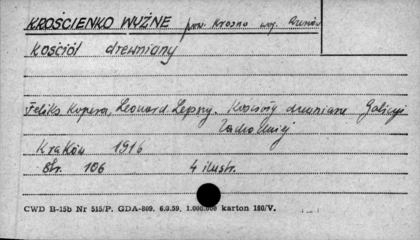 KROŚCIENKO WYŻNE pow. Krosno woj. Rzeszów
kościół drewniany
Feliks Kopera, Leonard Lepszy. Kościoły drewniane Galicyi
Zachodniej
Kraków 1916
Str. 106 4 ilustr.
CWD B-15b Nr 515/P. GDA-809. 6.8.59. 1.000.000 karton 180/V.